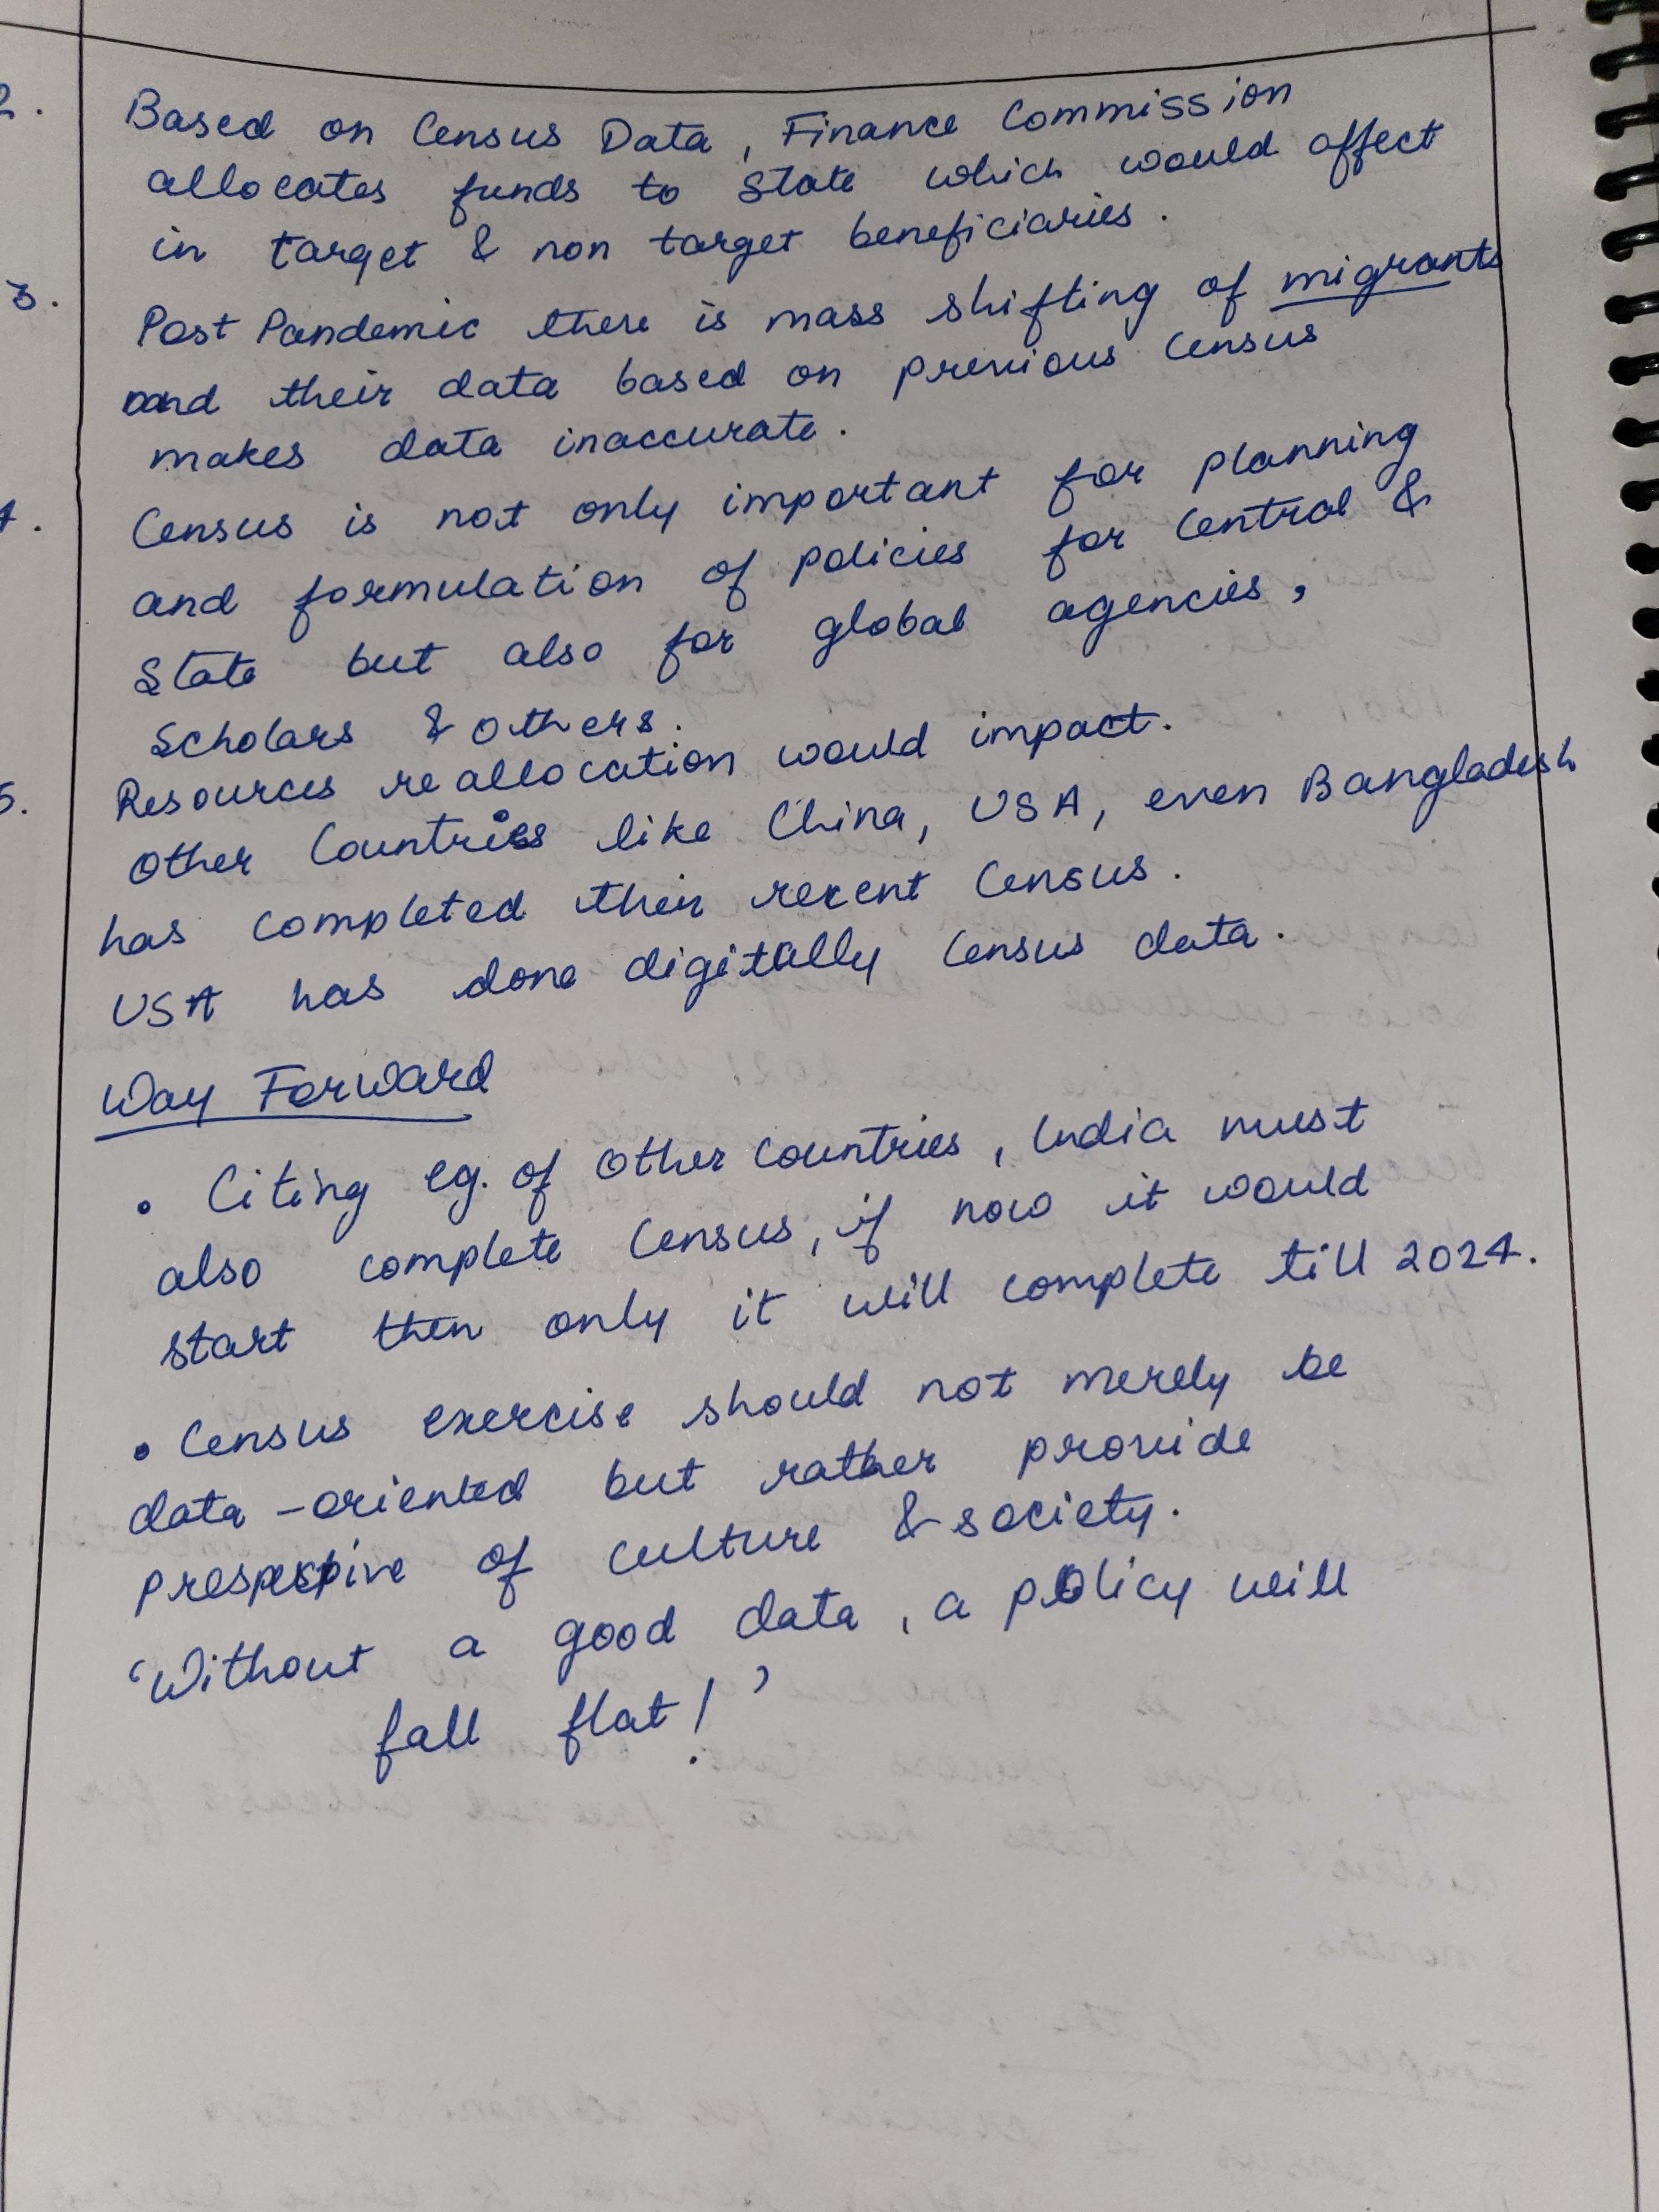 2. Based on Census Data, Finance Commission
allocates funds to State which would affect
in target & non target beneficiaries.
3. Post Pandemic there is mass shifting of migrants
and their data based on previous Census
makes data inaccurate.
4. Census is not only important for planning
and formulation of policies for Central &
State but also for global agencies,
Scholars & others.
5. Resources reallocation would impact.
Other Countries like China, USA, even Bangladesh
has completed their recent Census.
USA has done digitally Census data.
Way Forward
• Citing eg. of Other Countries, India must
also complete Census, if now it would
start then only it will complete till 2024.
• Census exercise should not merely be
data-oriented but rather provide
prespective of culture & society.
'Without a good data, a policy will
fall flat!'